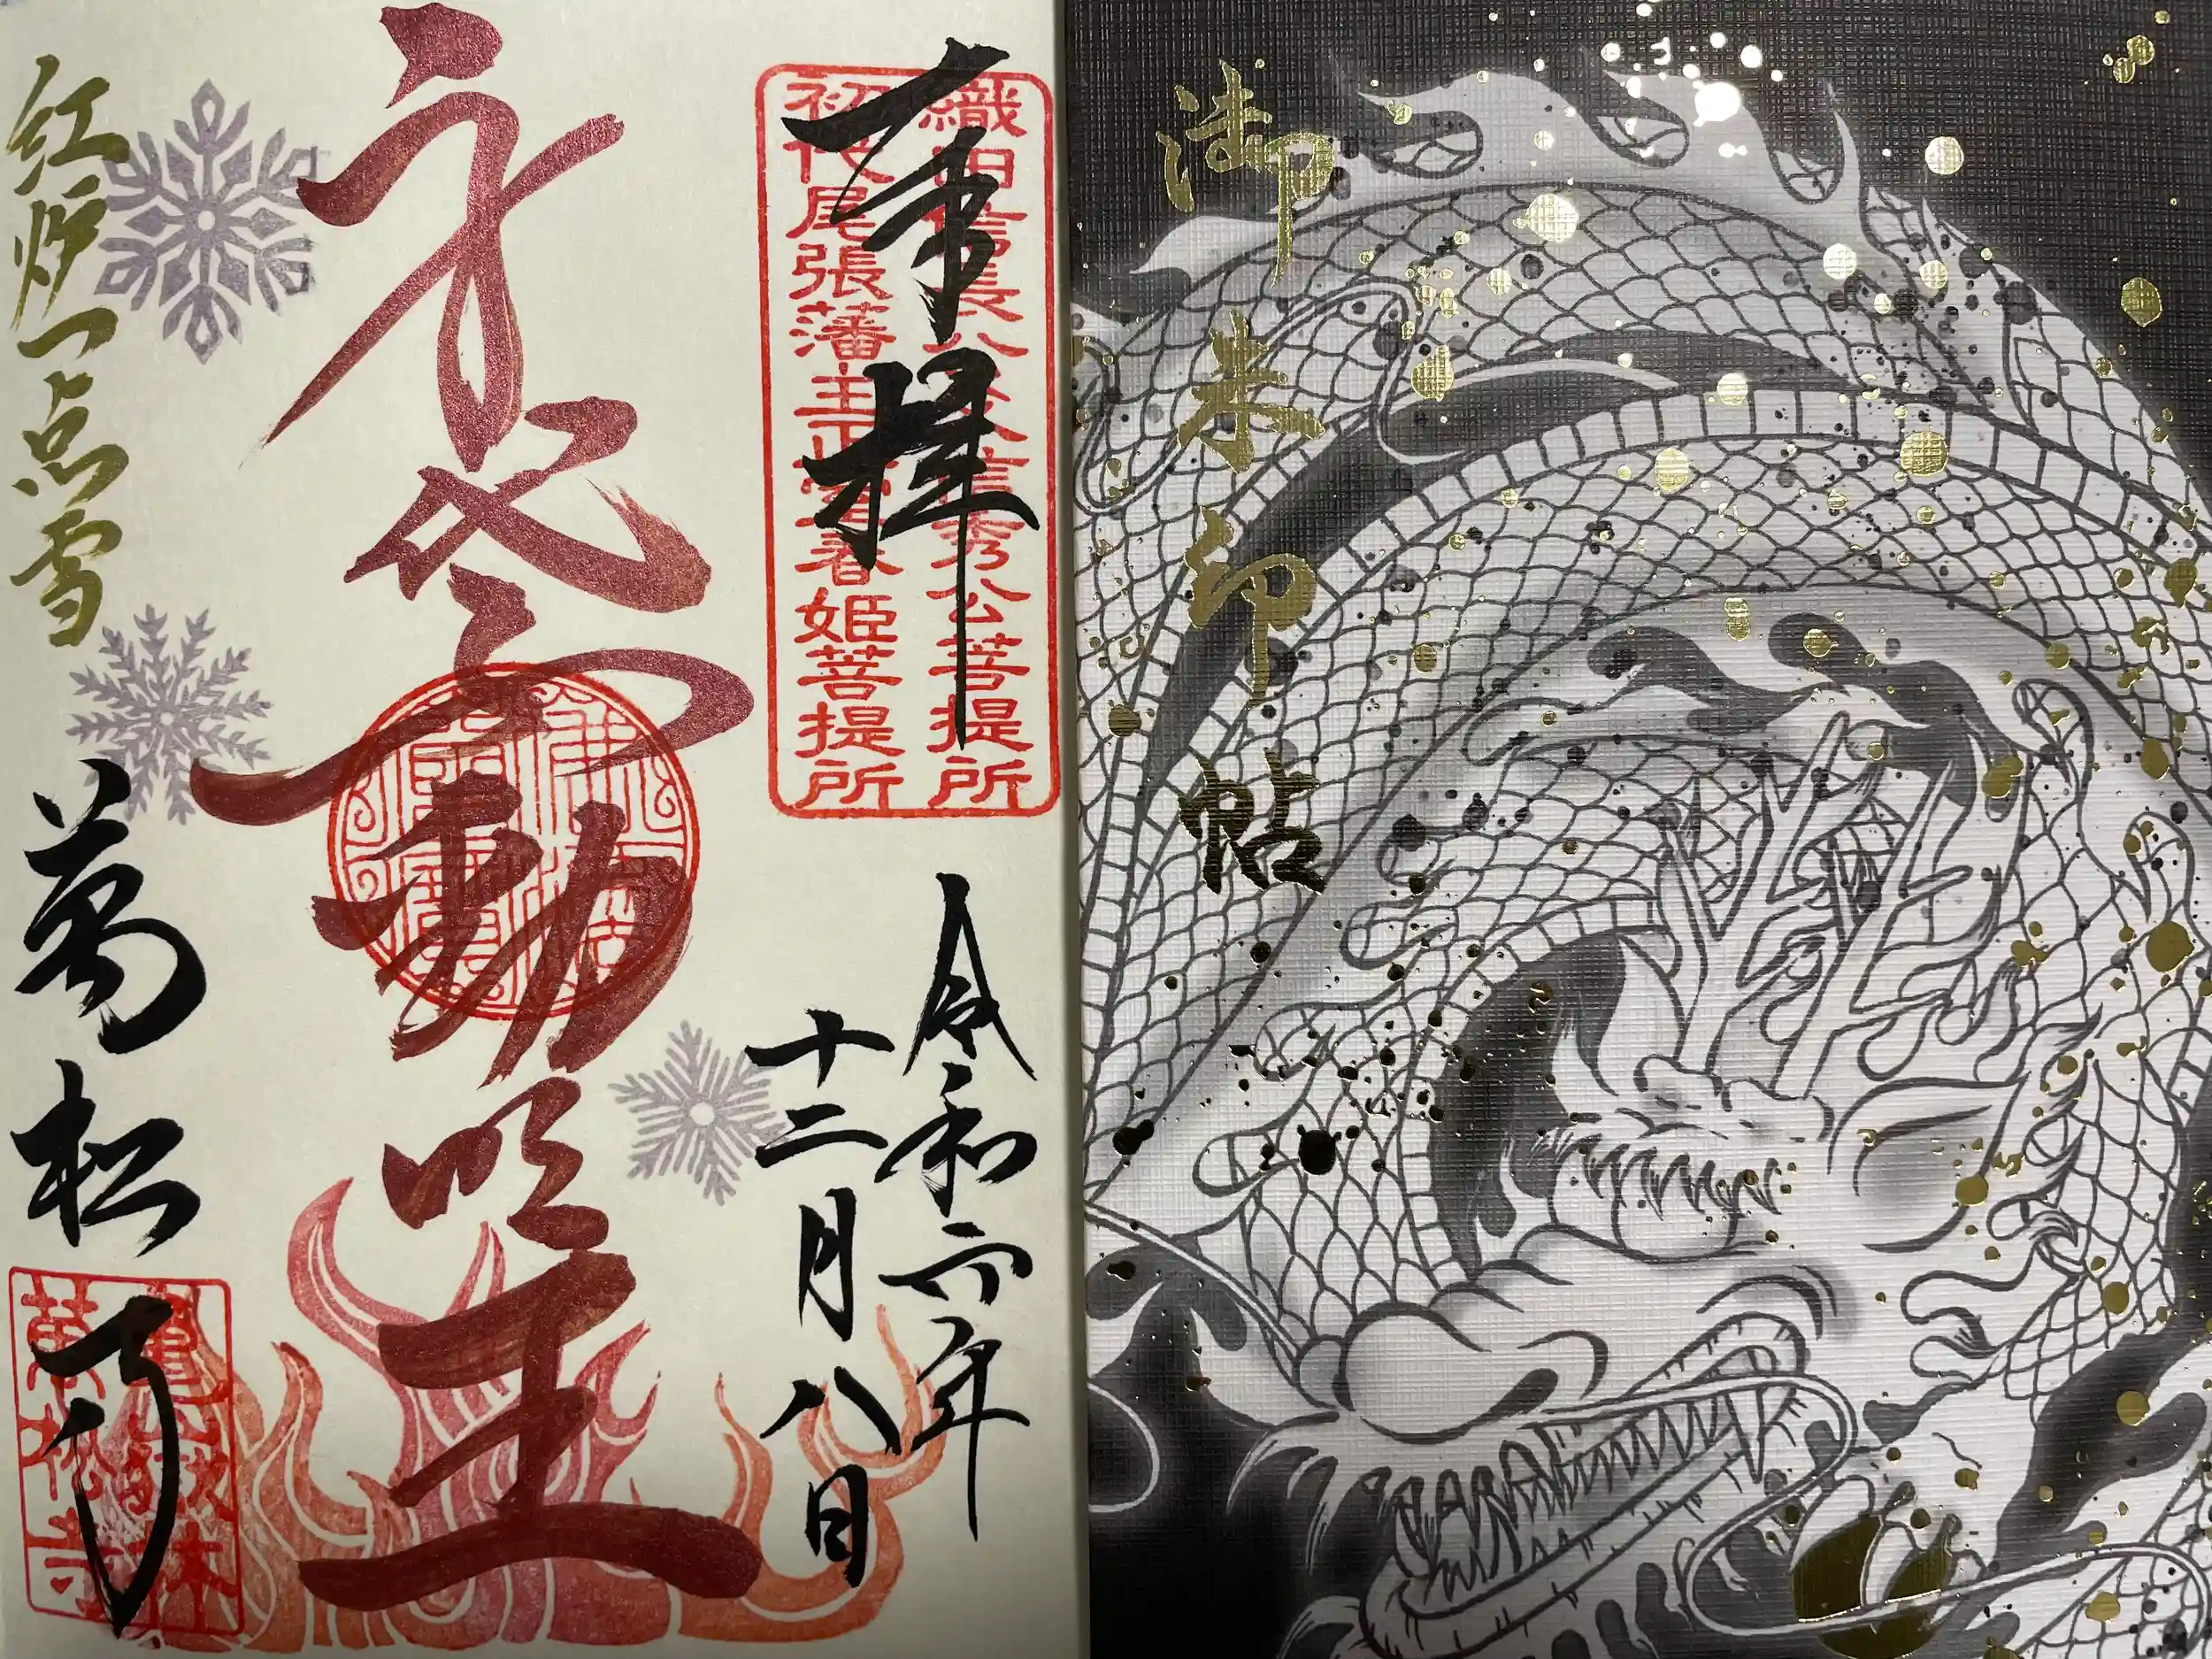 御朱印帖
織田信長公父信秀公菩提所
初代尾張藩主正室春姫菩提所
奉拝
令和六年
十二月八日
身代不動明王
紅炉一点雪
萬松寺
亀嶽林
萬松寺